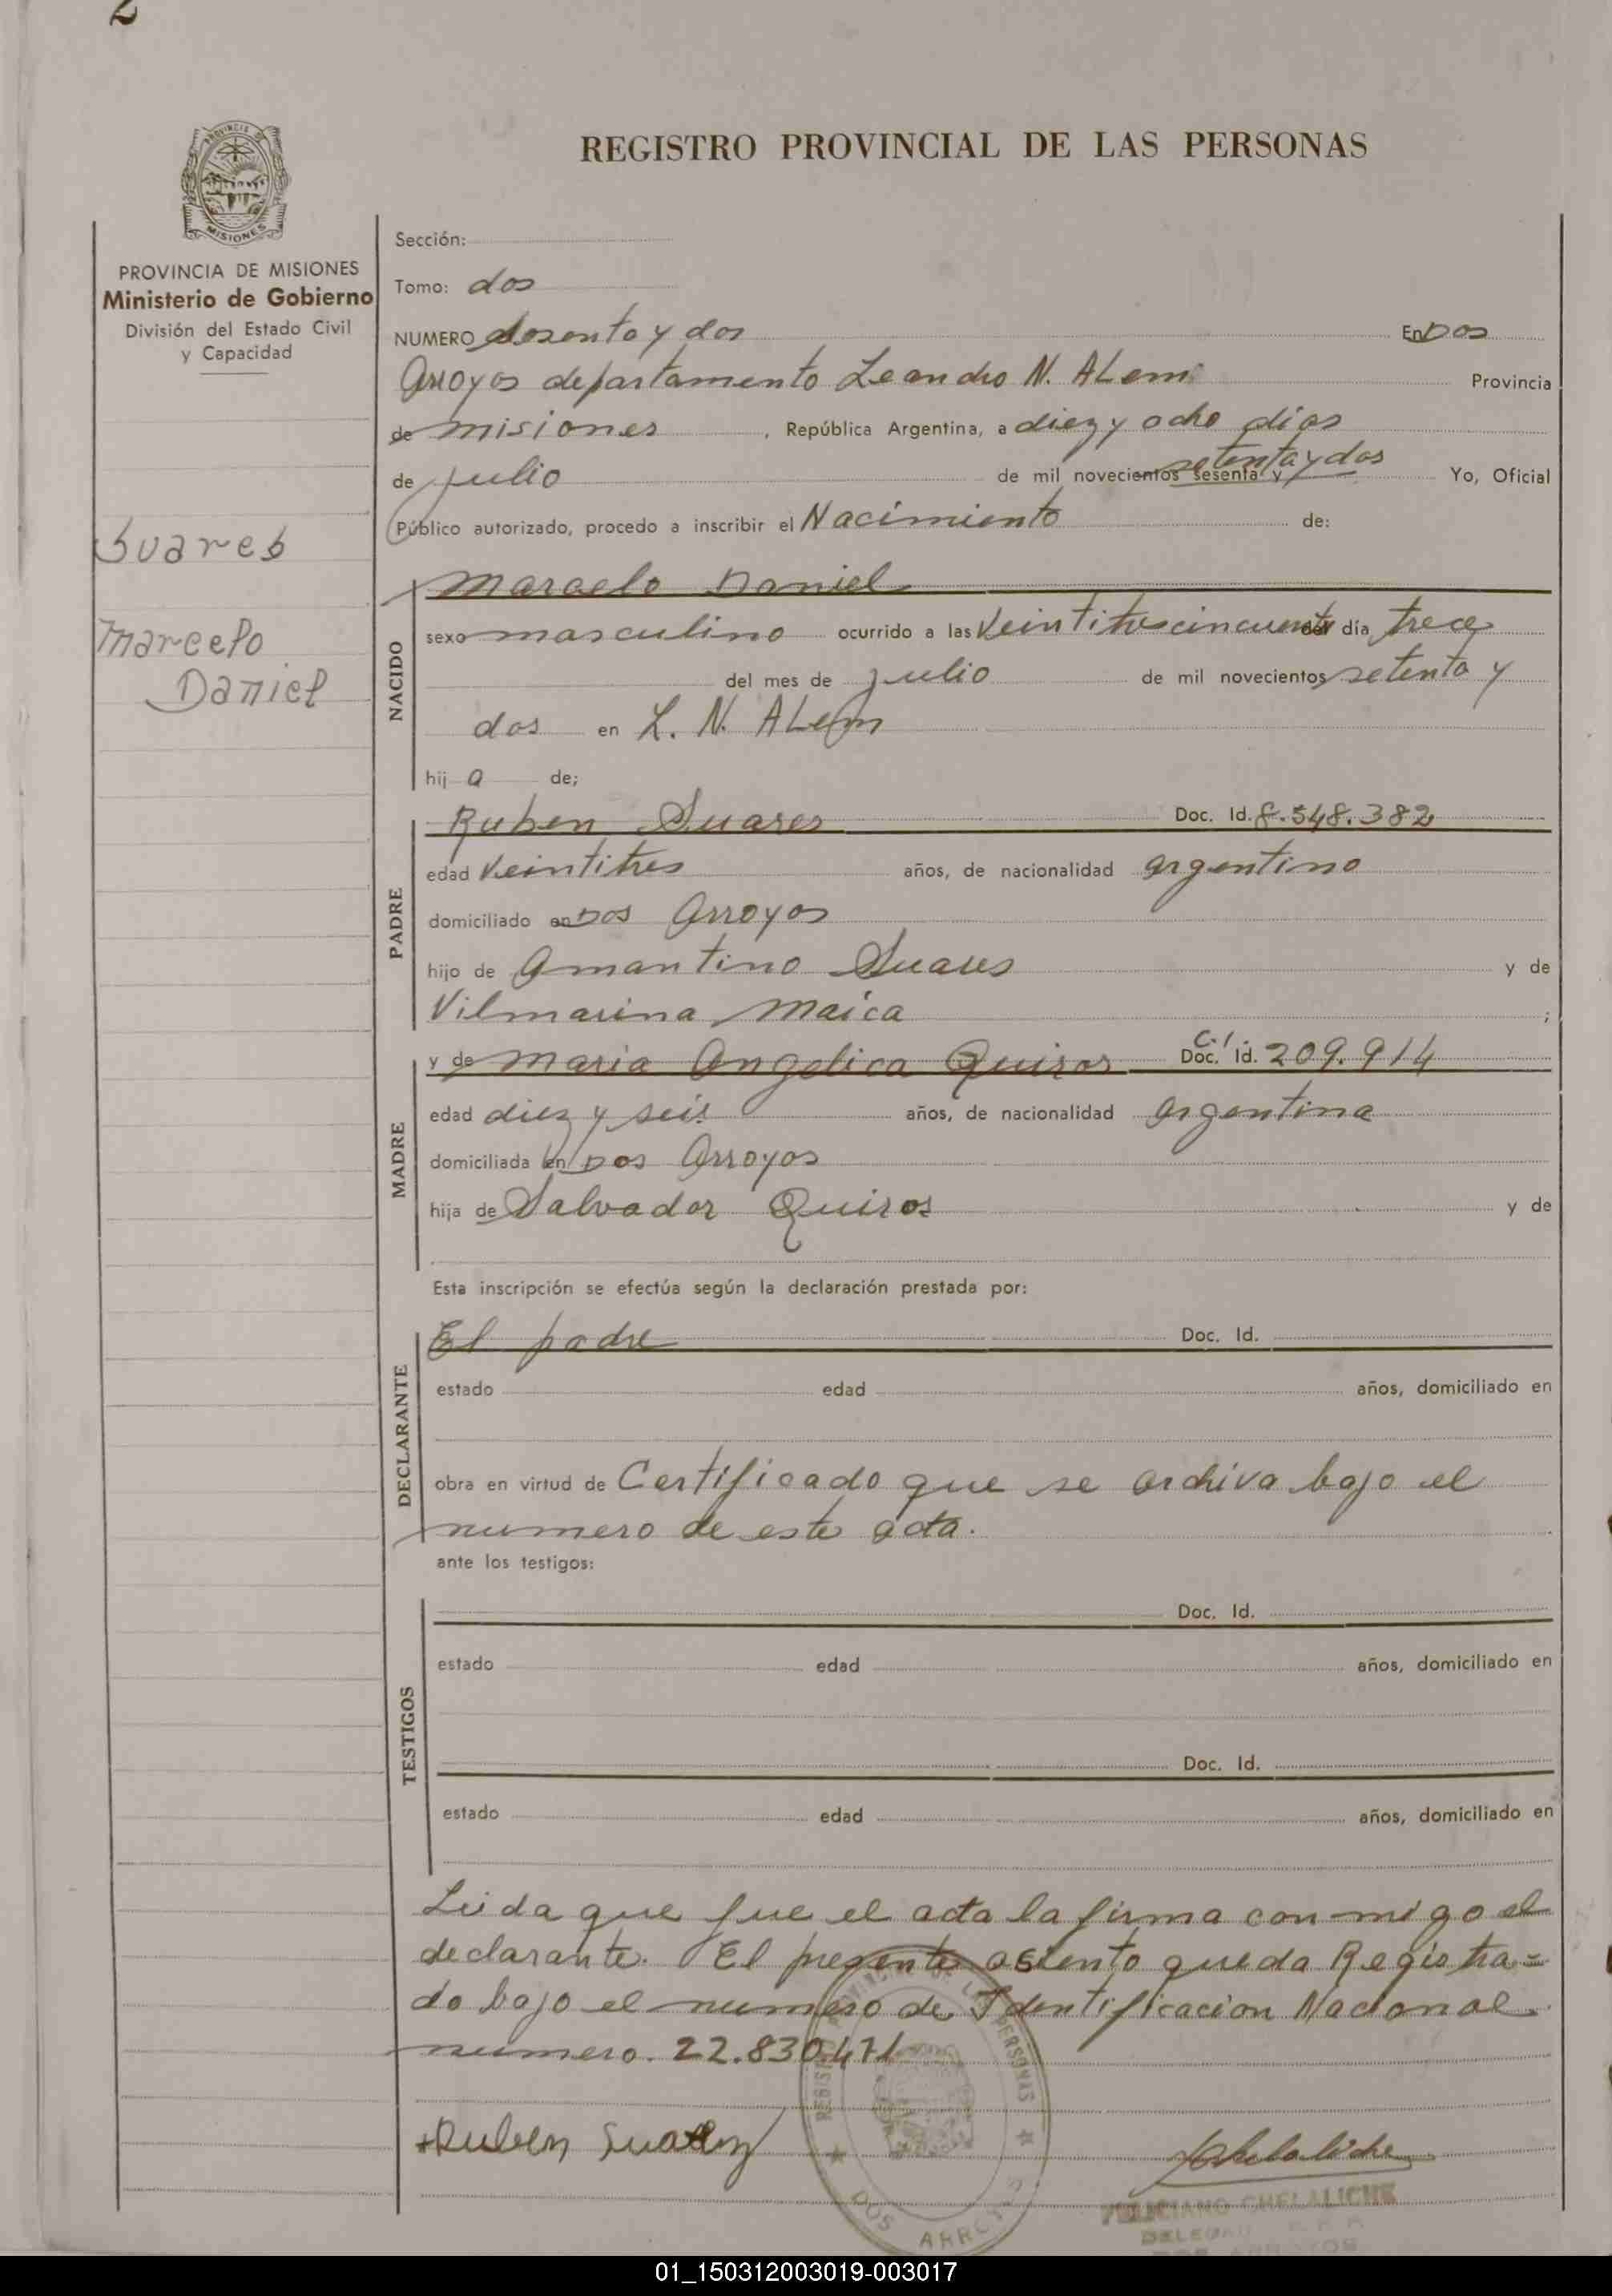 2
MISIONES
PROVINCIA DE MISIONES
Ministerio de Gobierno
División del Estado Civil
y Capacidad
Suares
Marcelo
Daniel
REGISTRO PROVINCIAL DE LAS PERSONAS
Sección:
Tomo: dos
NUMERO y dos En Dos
Arroyos departamento Leandro N. ALem Provincia
de misiones , República Argentina, a diez y ocho dias
de julio de mil novecientos sesenta y setenta y dos Yo, Oficial
Público autorizado, procedo a inscribir el Nacimiento de:
NACIDO
Marcelo Daniel
sexo masculino ocurrido a las Veintitres cincuenta del día trece
del mes de julio de mil novecientos setenta y
dos en L. N. ALem
hij o de;
PADRE
Ruben Suares Doc. Id. 8.548.382
edad Veintitres años, de nacionalidad argentino
domiciliado en Dos Arroyos
hijo de Amantino Suares y de
Vilmarina Maica ;
MADRE
y de Maria Angelica Quiros C.I. Doc. Id. 209.914
edad diez y seis años, de nacionalidad argentina
domiciliada en Dos Arroyos
hija de Salvador Quiros y de
Esta inscripción se efectúa según la declaración prestada por:
DECLARANTE
El padre Doc. Id.
estado edad años, domiciliado en
obra en virtud de Certificado que se archiva bajo el
numero de este acta.
ante los testigos:
TESTIGOS
Doc. Id.
estado edad años, domiciliado en
Doc. Id.
estado edad años, domiciliado en
Leida que fue el acta la firma con migo el
declarante. El presente asiento queda Registra=
do bajo el numero de Identificacion Nacional
numero. 22.830.471
REGISTRO PROVINCIAL DE LAS PERSONAS
DOS ARROYOS
Ruben Suarez
FELICIANO CHELALICHE
DELEGADO R. P. P.
DOS ARROYOS
01_150312003019-003017